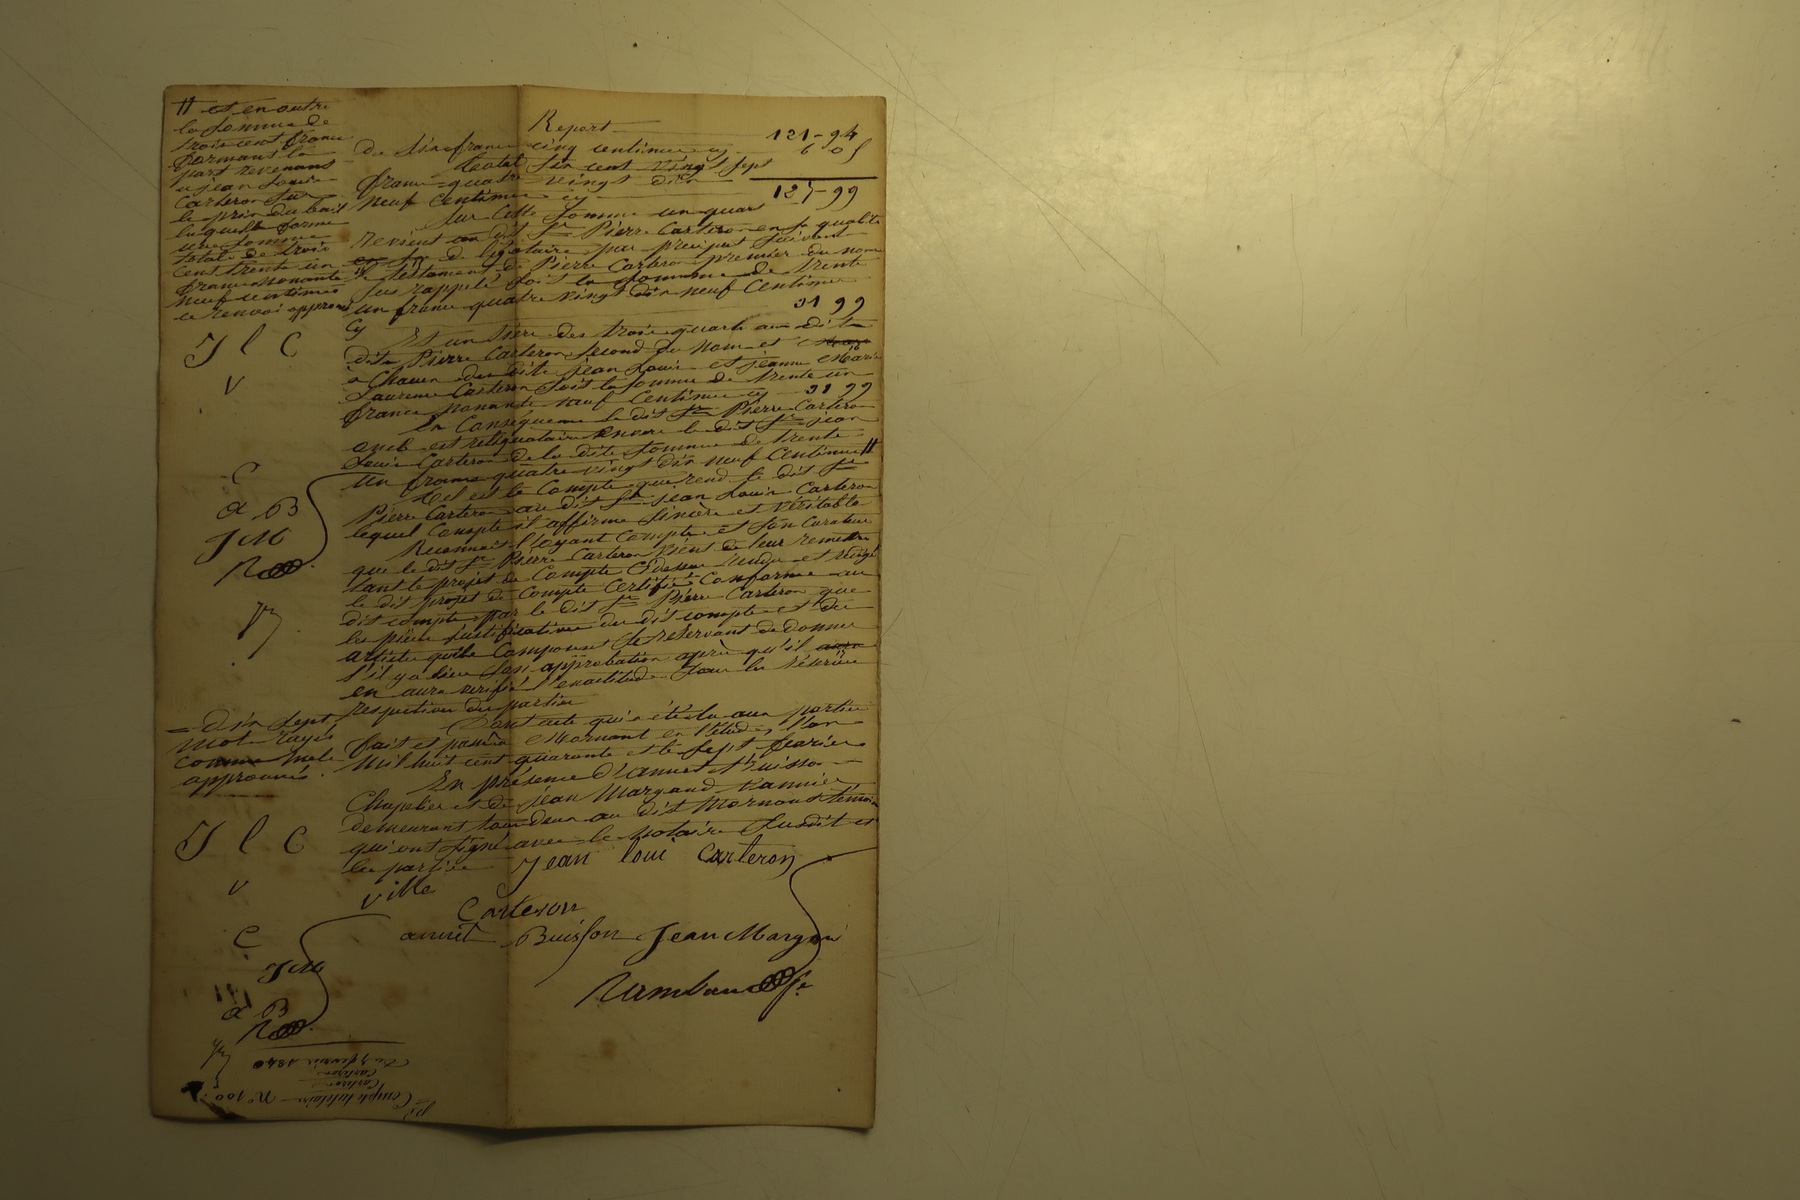 Report 121-94
de six francs cinq centimes cy 6 05
total six cent vingt sept
francs quatre vingt dix
neuf centimes cy 127-99
Sur cette somme un quart
revient au dit Sr Pierre Carteron en sa qualité
de légataire par preciput suivant
le testament de Pierre Carteron premier du nom
sus rappelé soit la somme de trente
un francs quatre vingt dix neuf centimes
cy 31 99
Et un tiers des trois quarts aux dits
dits Pierre Carteron second du nom et
à chacun des dits jean Louis et jeanne Marie
Laurence Carteron soit la somme de trente un
francs nonante neuf centimes cy 31 99
En conséquence le dit Sr Pierre Carteron
oncle est reliquataire envers le dit Sr jean
Louis Carteron de la dite somme de trente
un francs quatre vingt dix neuf centimes //
Tel est le compte que rend le dit Sr
Pierre Carteron au dit Sr jean Louis Carteron
lequel compte il affirme sincère et véritable
Reconnait l'oyant compte et son curateur
que le dit Sr Pierre Carteron vient de leur remettre
tant le projet de compte rendu et rédigé
le dit projet de compte certifié conforme au
dit compte par le dit Sr Pierre Carteron que
les pièces justificatives du dit compte et des
articles qui le composent se réservant de donner
s'il y a lieu son approbation après qu'il
en aura verifié l'exactitude sous les réserves
respectives des parties
Dont acte qui a été lu aux parties
fait et passé à Mornant en l'étude, l'an
mil huit cent quarante et le sept fevrier
En présence d'annet Buisson
Chapelier et de jean Margand vannier
demeurant tous deux au dit Mornant témoins
qui ont signé avec le notaire susdit et
les parties
Jean loui Carteron
ville
Carteron
annet Buisson Jean Margan
// et en outre
la somme de
trois cent francs
formant la
part revenant
a jean Louis
Carteron sur
le prix du bail
laquelle forme
une somme
totale de trois
cent trente un
francs nonante
neuf centimes
ce renvoi approuvé
J l C
V
C
a B
J M
= Dix sept
mots rayés
comme nuls
approuvés.
J l C
v
C
J M
a B
Compte tutélaire - N° 100
Carteron
Carteron
Du 7 fevrier 1840